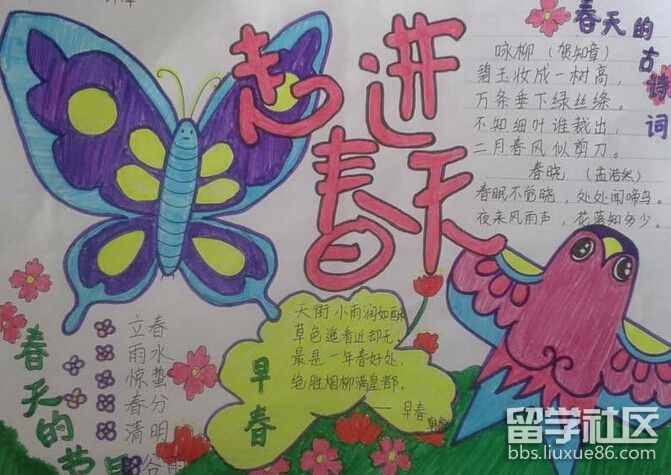 走进
春天
春天的古诗词
咏柳（贺知章）
碧玉妆成一树高，
万条垂下绿丝绦。
不知细叶谁裁出，
二月春风似剪刀。
春晓（孟浩然）
春眠不觉晓，处处闻啼鸟。
夜来风雨声，花落知多少。
天街小雨润如酥
草色遥看近却无。
最是一年春好处，
绝胜烟柳满皇都。
——早春
早春
春天的节
立春
雨水
惊蛰
春分
清明
谷雨
留学社区
bbs.liuxue86.com